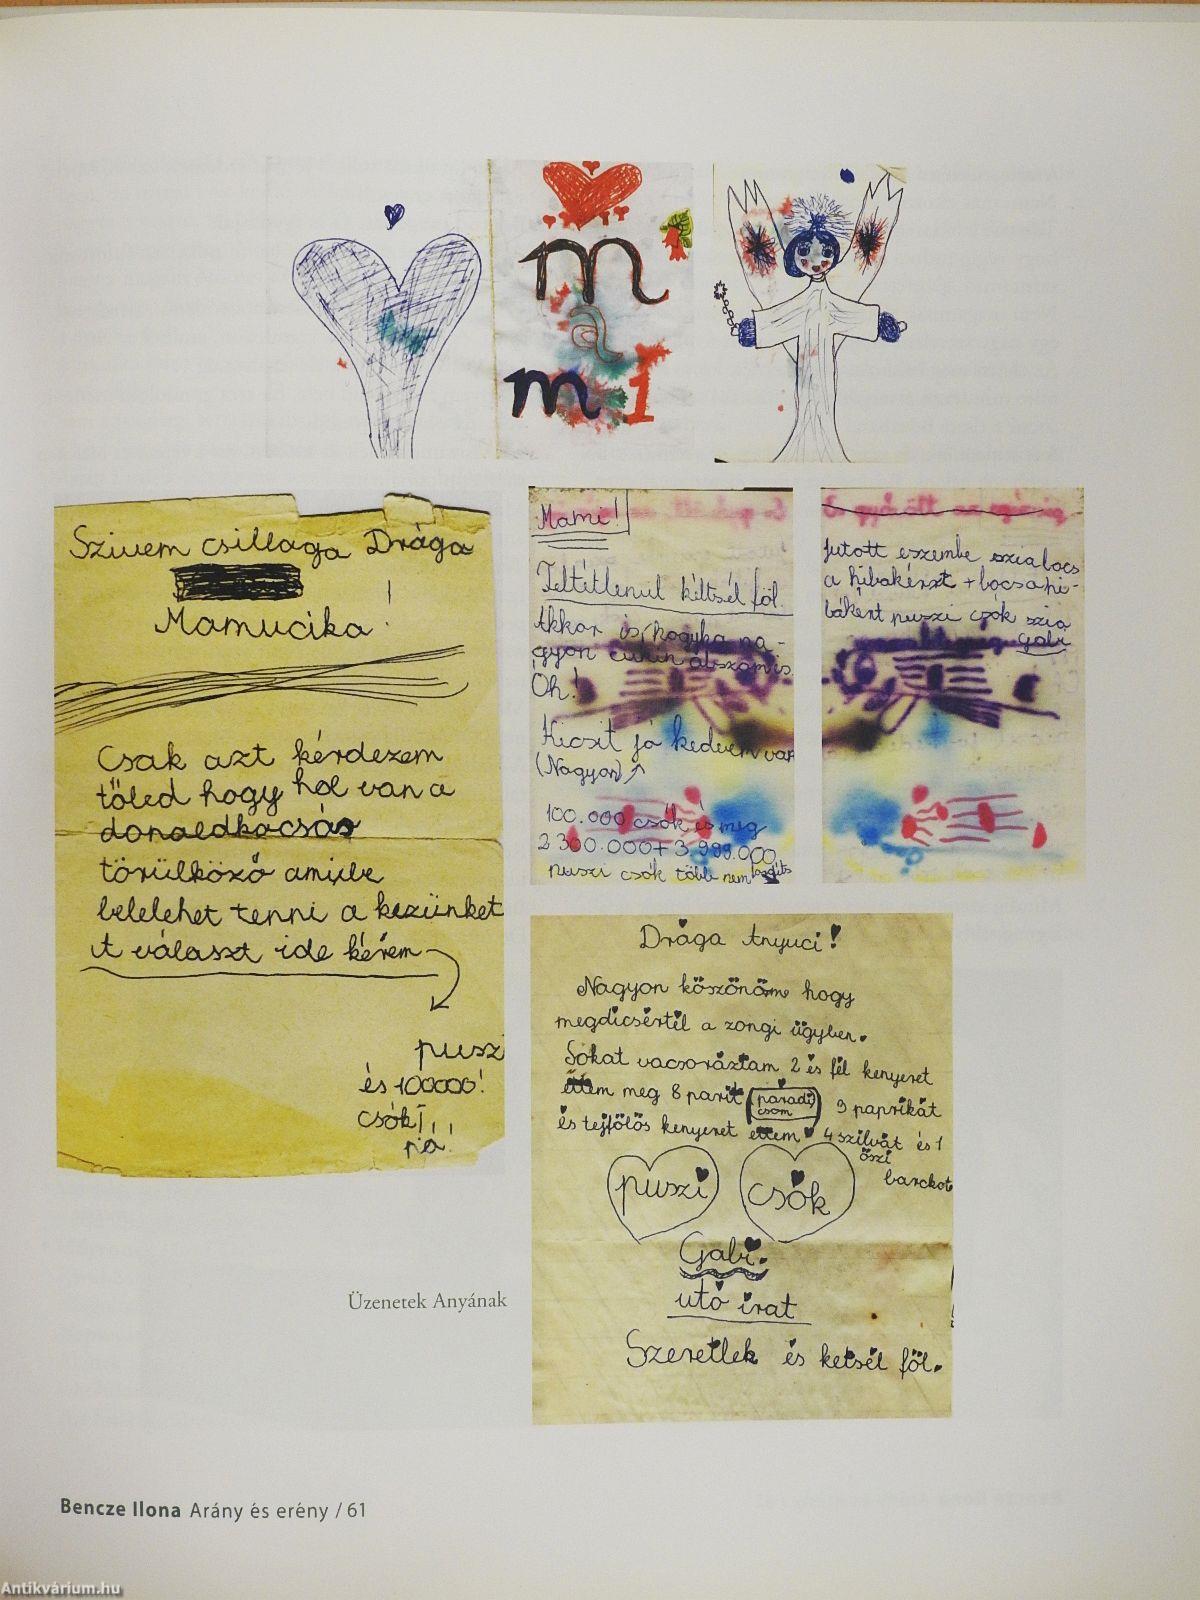 mami
Szivem csillaga Drága
Mamucika!
Csak azt kérdezem
tőled hogy hol van a
donaldkacsás
törülköző amibe
belelehet tenni a kezünket
A választ ide kérem
puszi
és 100000!
csók!
pá!
Mami!
Feltétlenül keltsél föl.
Akkor is, hogyha na-
gyon cukin alszom is.
Óh!
Kicsit jó kedvem van
(Nagyon)
100.000 csók és meg
2 300.000 + 3 999.000
puszi csók több nem
jutott eszembe szia bocs
a hibakért + bocs a hi-
báként puszi csók szia
Gabi
Drága Anyuci!
Nagyon köszönöm hogy
megdicsértél a zongi ügyben.
Sokat vacsoráztam 2 és fél kenyeret
ettem meg 8 parit (paradi 9 paprikát
csom)
és tejfölös kenyeret ettem 4 szilvát és 1
őszi
barckot
puszi csók
Gabi.
utó irat
Szeretlek és ketsél föl.
Üzenetek Anyának
Bencze Ilona Arány és erény / 61
Antikvárium.hu